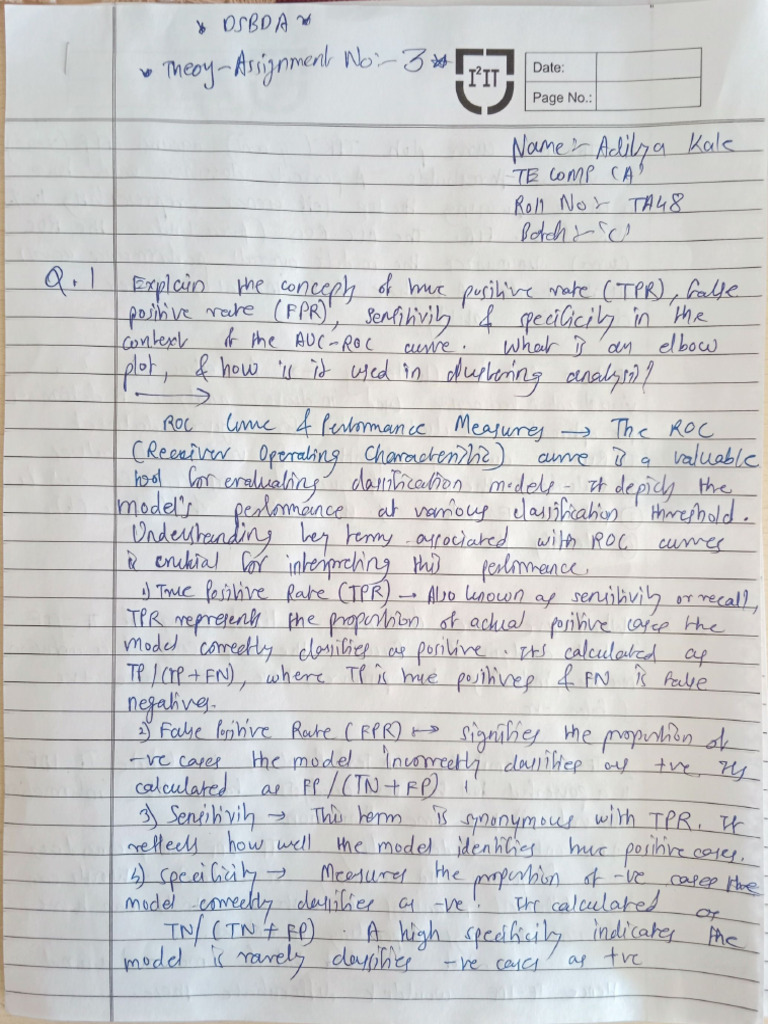 * DSBDA *
* Theory - Assignment No:- 3 *
I²IT
Date:
Page No.:
Name:- Aditya Kale
TE COMP (A)
Roll No:- TA48
Batch:- 'C'
Q.1 Explain the concepts of true positive rate (TPR), false
positive rate (FPR), sensitivity & specificity in the
context of the AUC-ROC curve. What is an elbow
plot, & how is it used in clustering analysis?
→
ROC Curve & Performance Measures → The ROC
(Receiver Operating Characteristic) curve is a valuable
tool for evaluating classification models. It depicts the
model's performance at various classification threshold.
Understanding key terms associated with ROC curves
is crucial for interpreting this performance.
1) True Positive Rate (TPR) → Also known as sensitivity or recall,
TPR represents the proportion of actual positive cases the
model correctly classifies as positive. Its calculated as
TP/(TP+FN), where TP is true positives & FN is false
negatives.
2) False Positive Rate (FPR) → signifies the proportion of
-ve cases the model incorrectly classifies as +ve. Its
calculated as FP/(TN+FP).
3) Sensitivity → This term is synonymous with TPR. It
reflects how well the model identifies true positive cases.
4) Specificity → Measures the proportion of -ve cases the
model correctly classifies as -ve. Its calculated as
TN/(TN+FP). A high specificity indicates the
model is rarely classifies -ve cases as +ve